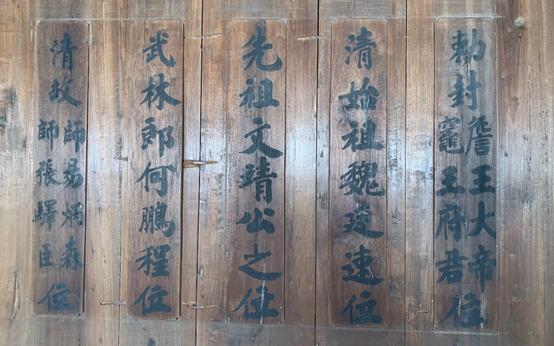 勅封
詹王大帝
竈王府君
位
清始祖魏速位
先祖文靖公之位
武林郎何鵬程位
清故
師易炳森
師張驛臣
位